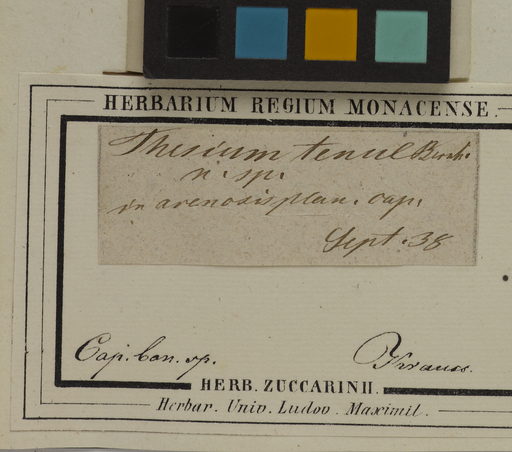 HERBARIUM REGIUM MONACENSE.
Thesium tenue Bernh.
n. sp.
in arenosis plan. cap.
Sept. 38
Cap. bon. sp.
Krauss.
HERB. ZUCCARINII.
Herbar. Univ. Ludov. Maximil.